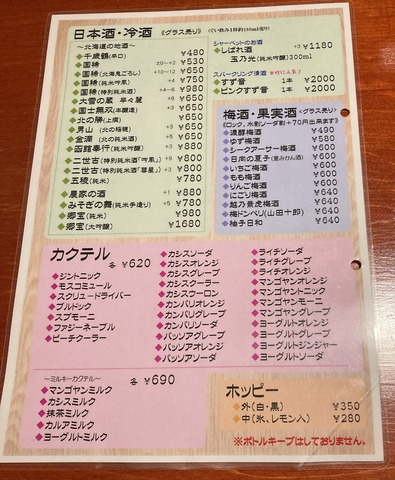 日本酒・冷酒 《グラス売り》 (ぐい飲み1杯約180ml売り)
~北海道の地酒~
◆千歳鶴(辛口) ¥480
◆国稀 ±0~+2 ¥530
◆国稀(北海鬼ごろし) ¥650
◆国稀(純米) ¥750
◆国稀(特別純米酒) ¥980
◆大雪の蔵 辛々麗 +9 ¥650
◆国士無双(本醸造) ¥630
◆北の勝(上撰) ¥650
◆男山 (北の稲穂) ¥650
◆金滴 (純米)
◆函館奉行(純米吟醸)
◆二世古(特別純米酒「吟風」)
◆二世古(特別純米酒「彗星」) ¥880
◆五稜(純米) ¥780
◆農家の酒 +1 ¥880
◆みそぎの舞(純米手造り) ¥780
◆郷宝(純米) ¥980
◆郷宝(大吟醸) ¥1680
シャーベットのお酒
◆しばれ酒 +3 ¥1180
玉乃光(純米吟醸)300ml
スパークリング清酒 女性に人気!
◆すず音 1本 ¥2000
◆ピンクすず音 1本 ¥2000
梅酒・果実酒 《グラス売り》
(ロック、水割ソーダ割+70円出来ます)
◆濃醇梅酒 ¥490
◆ゆず梅酒 ¥580
◆シークアーサー梅酒 ¥600
◆日向の夏子(夏みかん酒) ¥600
◆いちご梅酒 ¥600
◆もも梅酒 ¥600
◆りんご梅酒 ¥600
◆にごり梅酒 ¥600
◆越乃景虎梅酒 ¥640
◆梅ドンペリ(山田十郎) ¥640
◆柚子日和 ¥640
カクテル 各 ¥620
◆ジントニック
◆モスコミュール
◆スクリュードライバー
◆ブルドック
◆スプモーニ
◆ファジーネーブル
◆ピーチクーラー
◆カシスソーダ
◆カシスオレンジ
◆カシスグレープ
◆カシスクーラー
◆カシスウーロン
◆カンパリオレンジ
◆カンパリグレープ
◆カンパリソーダ
◆パッソアグレープ
◆パッソアオレンジ
◆パッソアソーダ
◆ライチソーダ
◆ライチグレープ
◆ライチオレンジ
◆マンゴヤンオレンジ
◆マンゴヤントニック
◆マンゴヤンモーニ
◆マンゴヤングレープ
◆ヨーグルトオレンジ
◆ヨーグルトジンジャー
◆ヨーグルトソーダ
~ミルキーカクテル~ 各 ¥690
◆マンゴヤンミルク
◆カシスミルク
◆抹茶ミルク
◆カルアミルク
◆ヨーグルトミルク
ホッピー
◆外(白・黒) ¥350
◆中(氷、レモン入) ¥280
※ボトルキープはしておりません。